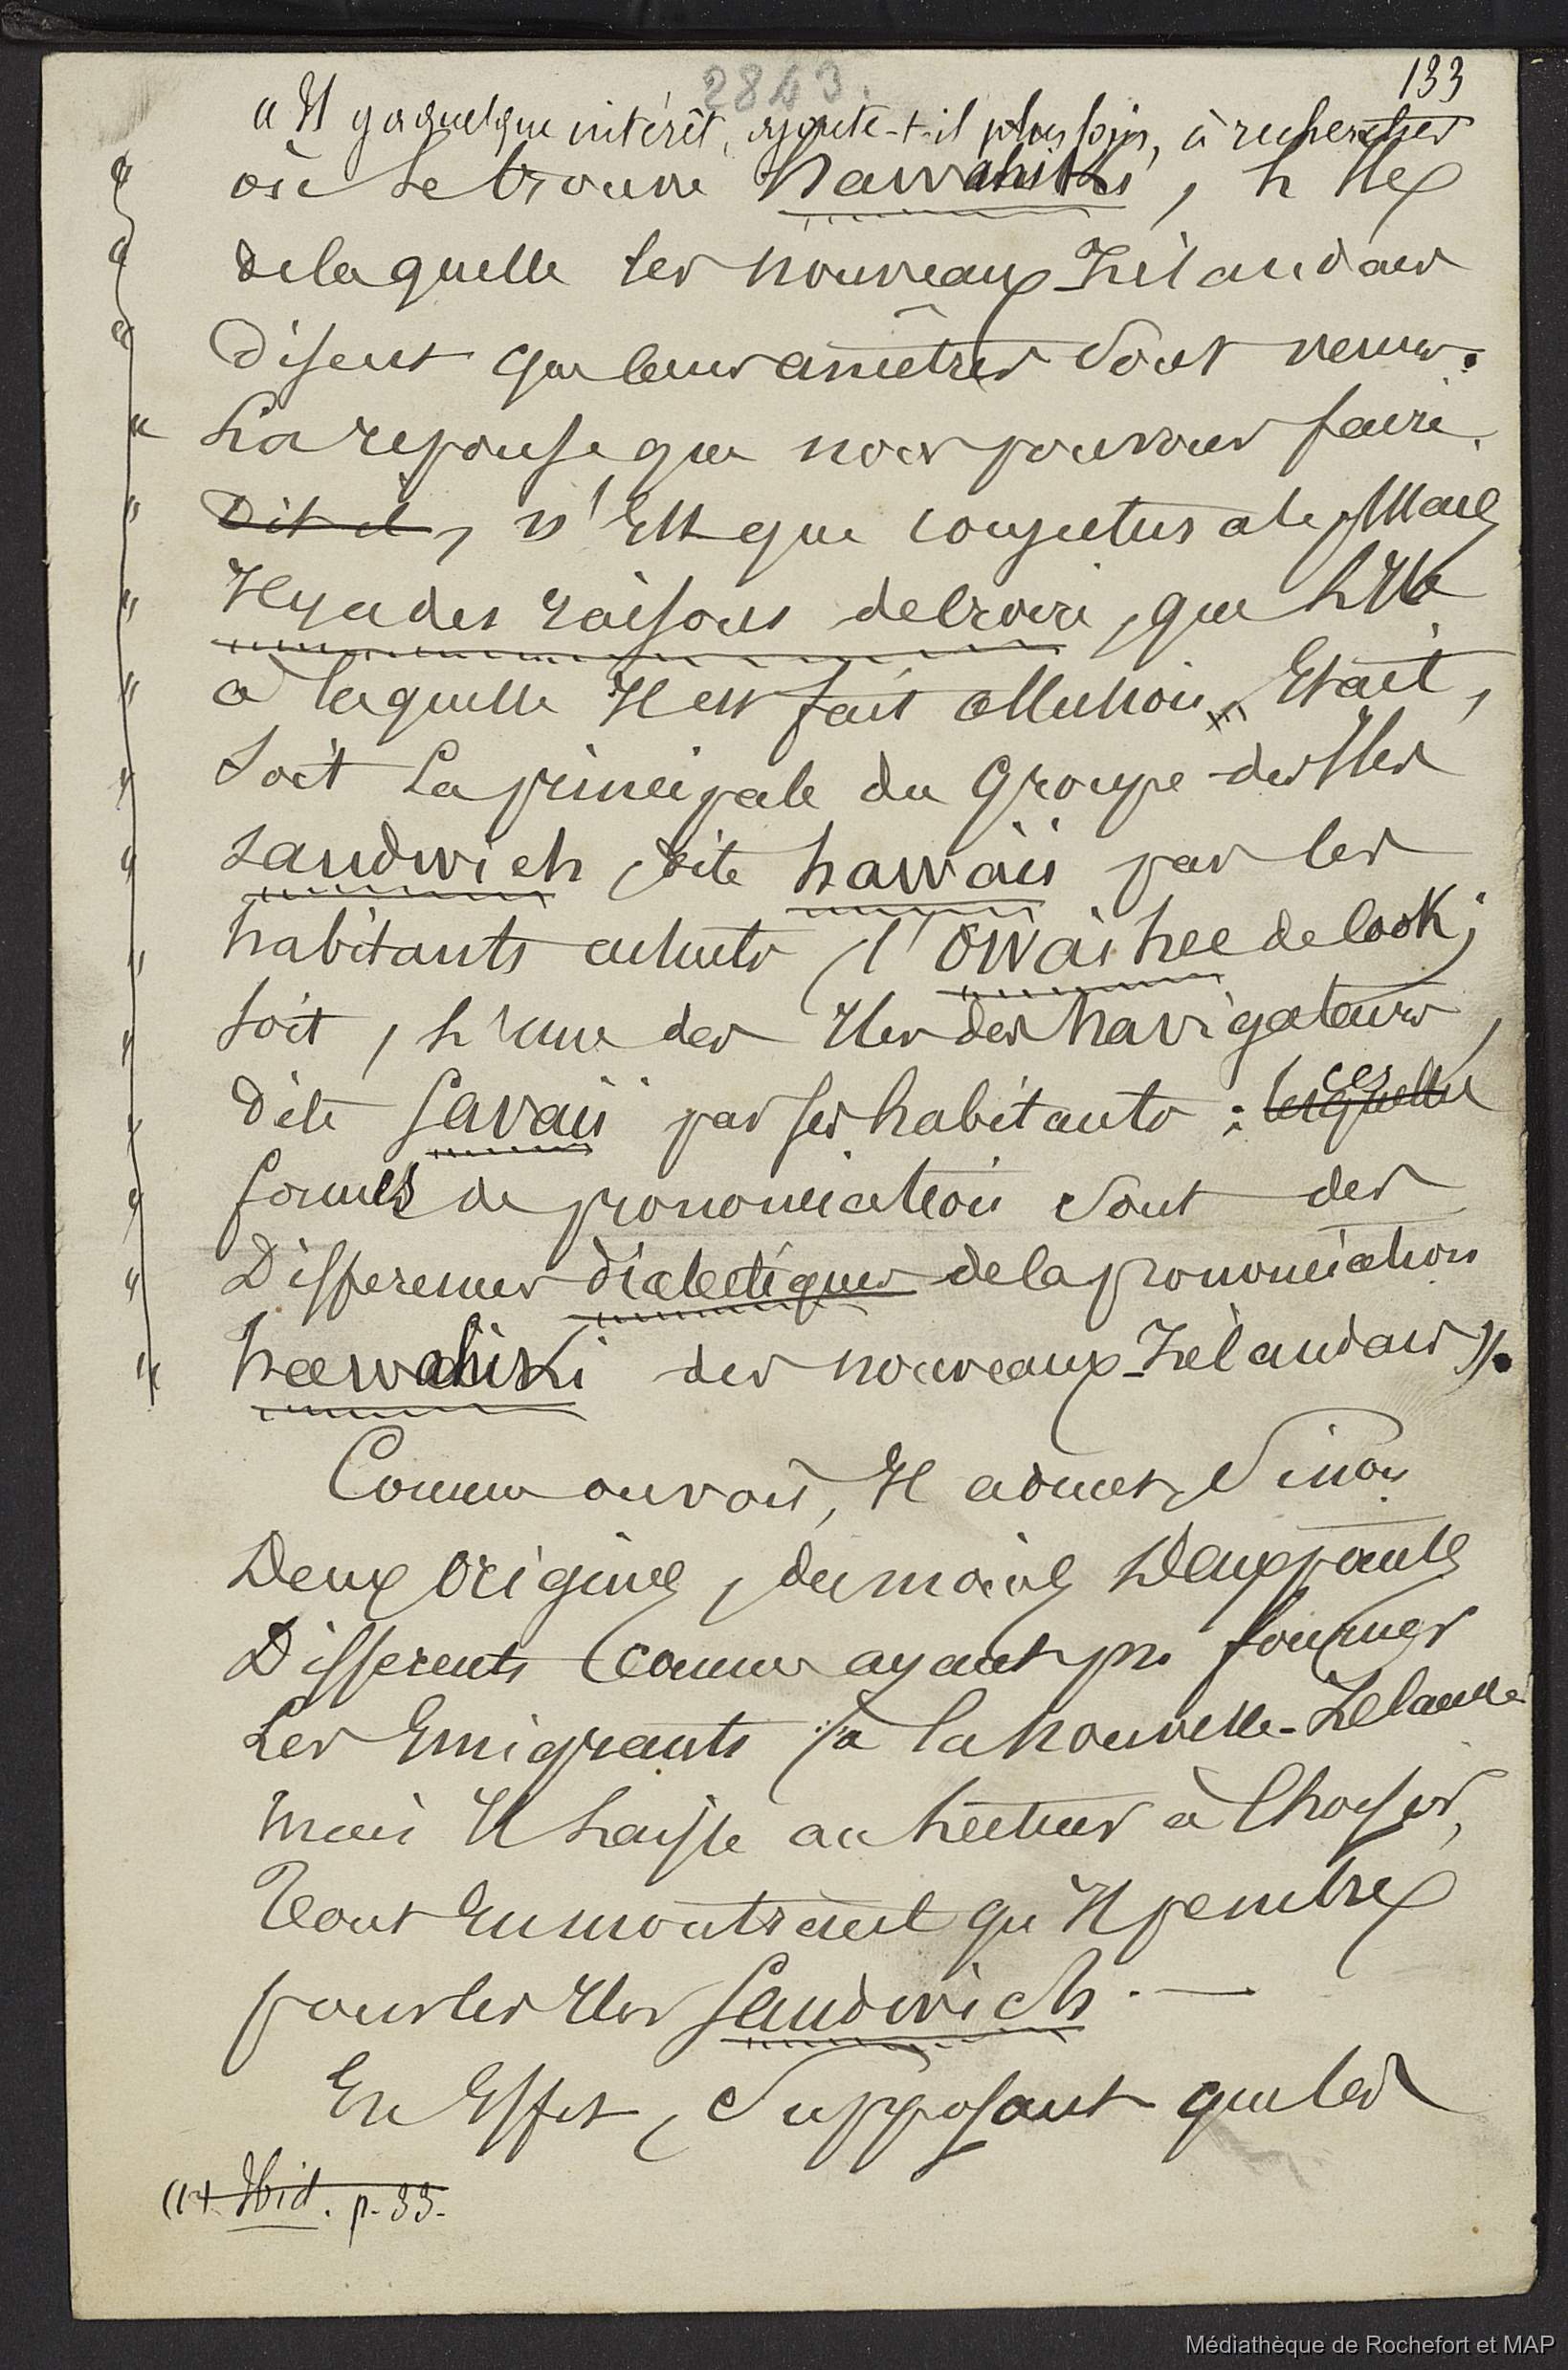 2843.
133
« Il y a quelque intérêt, ajoute-t-il plus loin, à rechercher
où se trouve hawahiki, l'Ile
de laquelle les nouveaux-Zélandais
disent que leurs ancêtres sont venus.
La réponse que nous pouvons faire,
dit-il, n'est que conjecturale, Mais
Il y a des raisons de croire, que l'Ile
à laquelle Il est fait allusion, Etait,
soit la principale du Groupe des Iles
sandwich, dite hawaïi par les
habitants actuels, l'Owaihee de Cook;
soit, l'une des Iles des navigateurs,
dite Savaii par ses habitants: lesquelles ces
formes de prononciation sont des
Differences dialectiques de la prononciation
hawahiki des nouveaux-Zélandais ».
Comme on voit, Il admet, Sinon
Deux Origines, du moins Deux points
Differents Comme ayant pu fournir
Les Emigrants à la Nouvelle-Zelande
mais Il laisse au lecteur à Choisir,
Tout En montrant qu'Il penche
pour les Iles Sandwich. —
En Effet, Supposant que les
(1) Ibid. p. 33.
Médiathèque de Rochefort et MAP